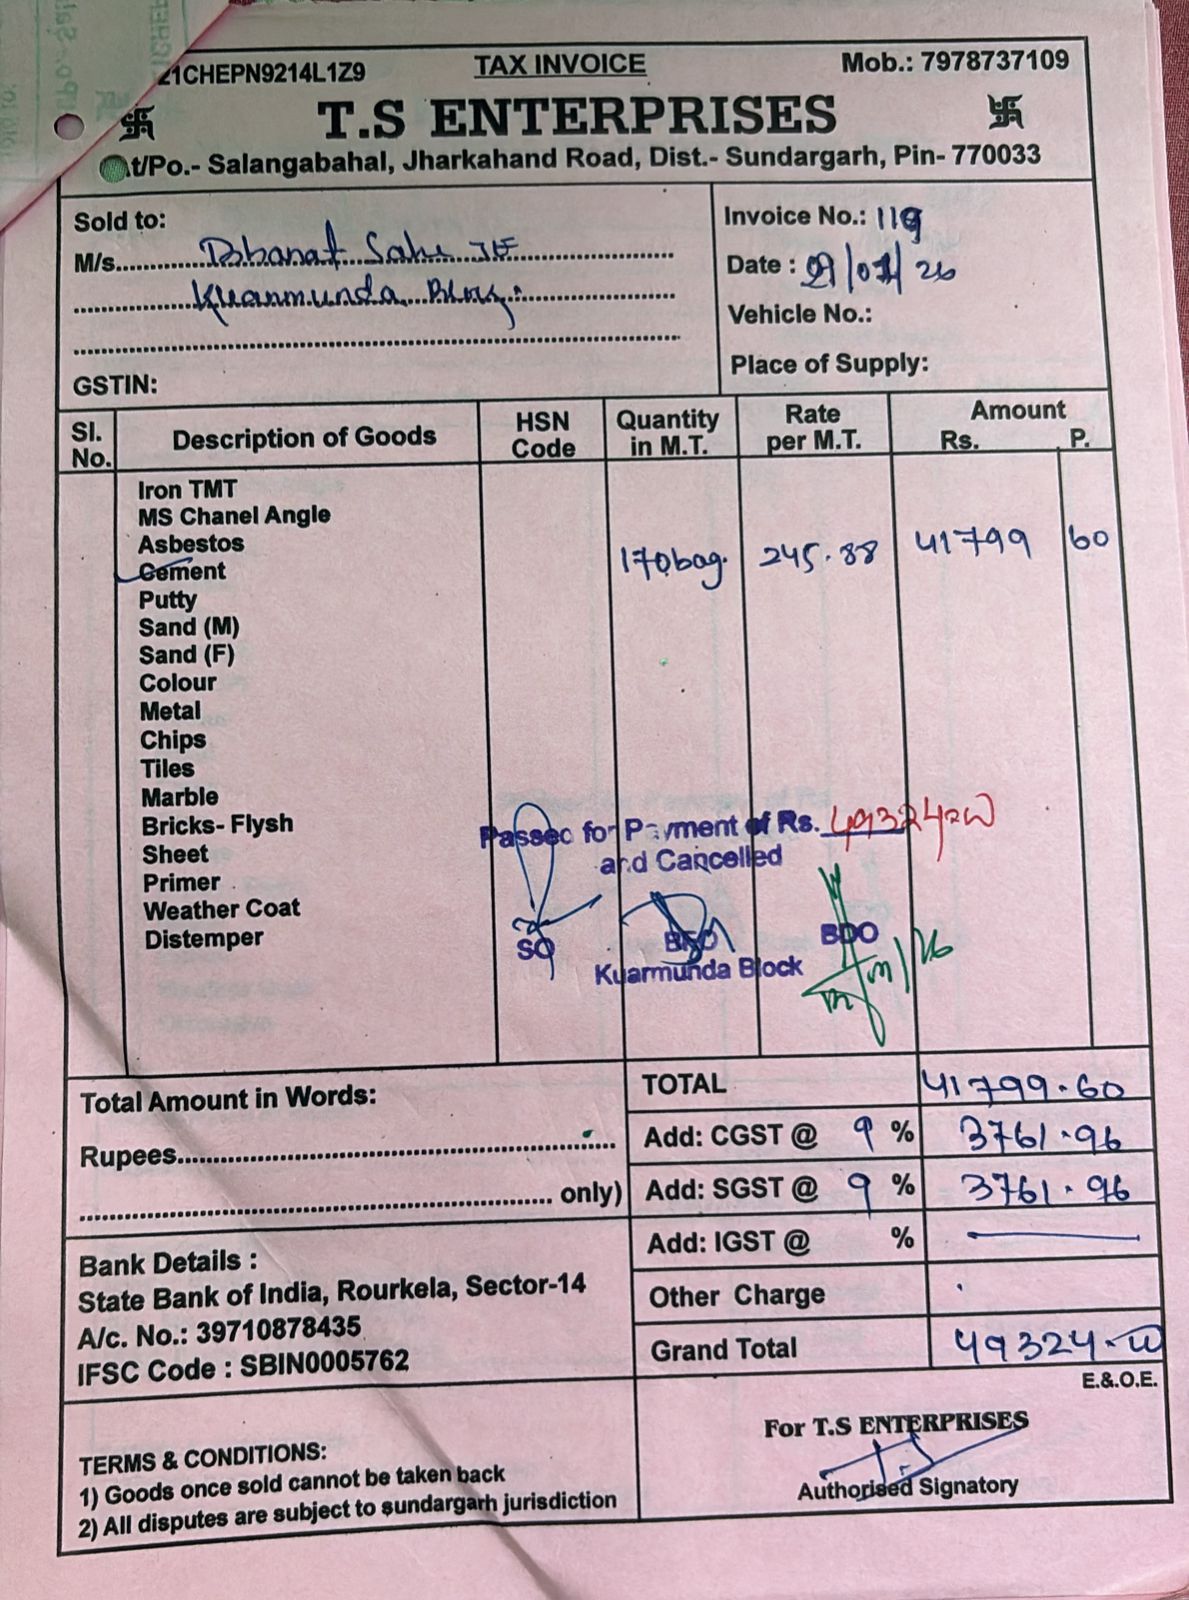 21CHEPN9214L1Z9
TAX INVOICE
Mob.: 7978737109
T.S ENTERPRISES
At/Po.- Salangabahal, Jharkahand Road, Dist.- Sundargarh, Pin- 770033
Sold to:
M/s. Bharat Sahu JE
Kuarmunda Block
GSTIN:
Invoice No.: 119
Date : 29/01/26
Vehicle No.:
Place of Supply:
Sl. No. Description of Goods HSN Code Quantity in M.T. Rate per M.T. Amount Rs. P.
Iron TMT
MS Chanel Angle
Asbestos
Cement 170 bag. 245.88 41799 60
Putty
Sand (M)
Sand (F)
Colour
Metal
Chips
Tiles
Marble
Bricks- Flysh
Sheet
Primer
Weather Coat
Distemper
Passed for Payment of Rs. 49324
and Cancelled
SO BDO
Kuarmunda Block
TOTAL 41799.60
Total Amount in Words:
Add: CGST @ 9 % 3761.96
Rupees
Add: SGST @ 9 % 3761.96
only)
Add: IGST @ %
Other Charge
Grand Total 49324
Bank Details :
State Bank of India, Rourkela, Sector-14
A/c. No.: 39710878435
IFSC Code : SBIN0005762
E.&.O.E.
For T.S ENTERPRISES
Authorised Signatory
TERMS & CONDITIONS:
1) Goods once sold cannot be taken back
2) All disputes are subject to sundargarh jurisdiction